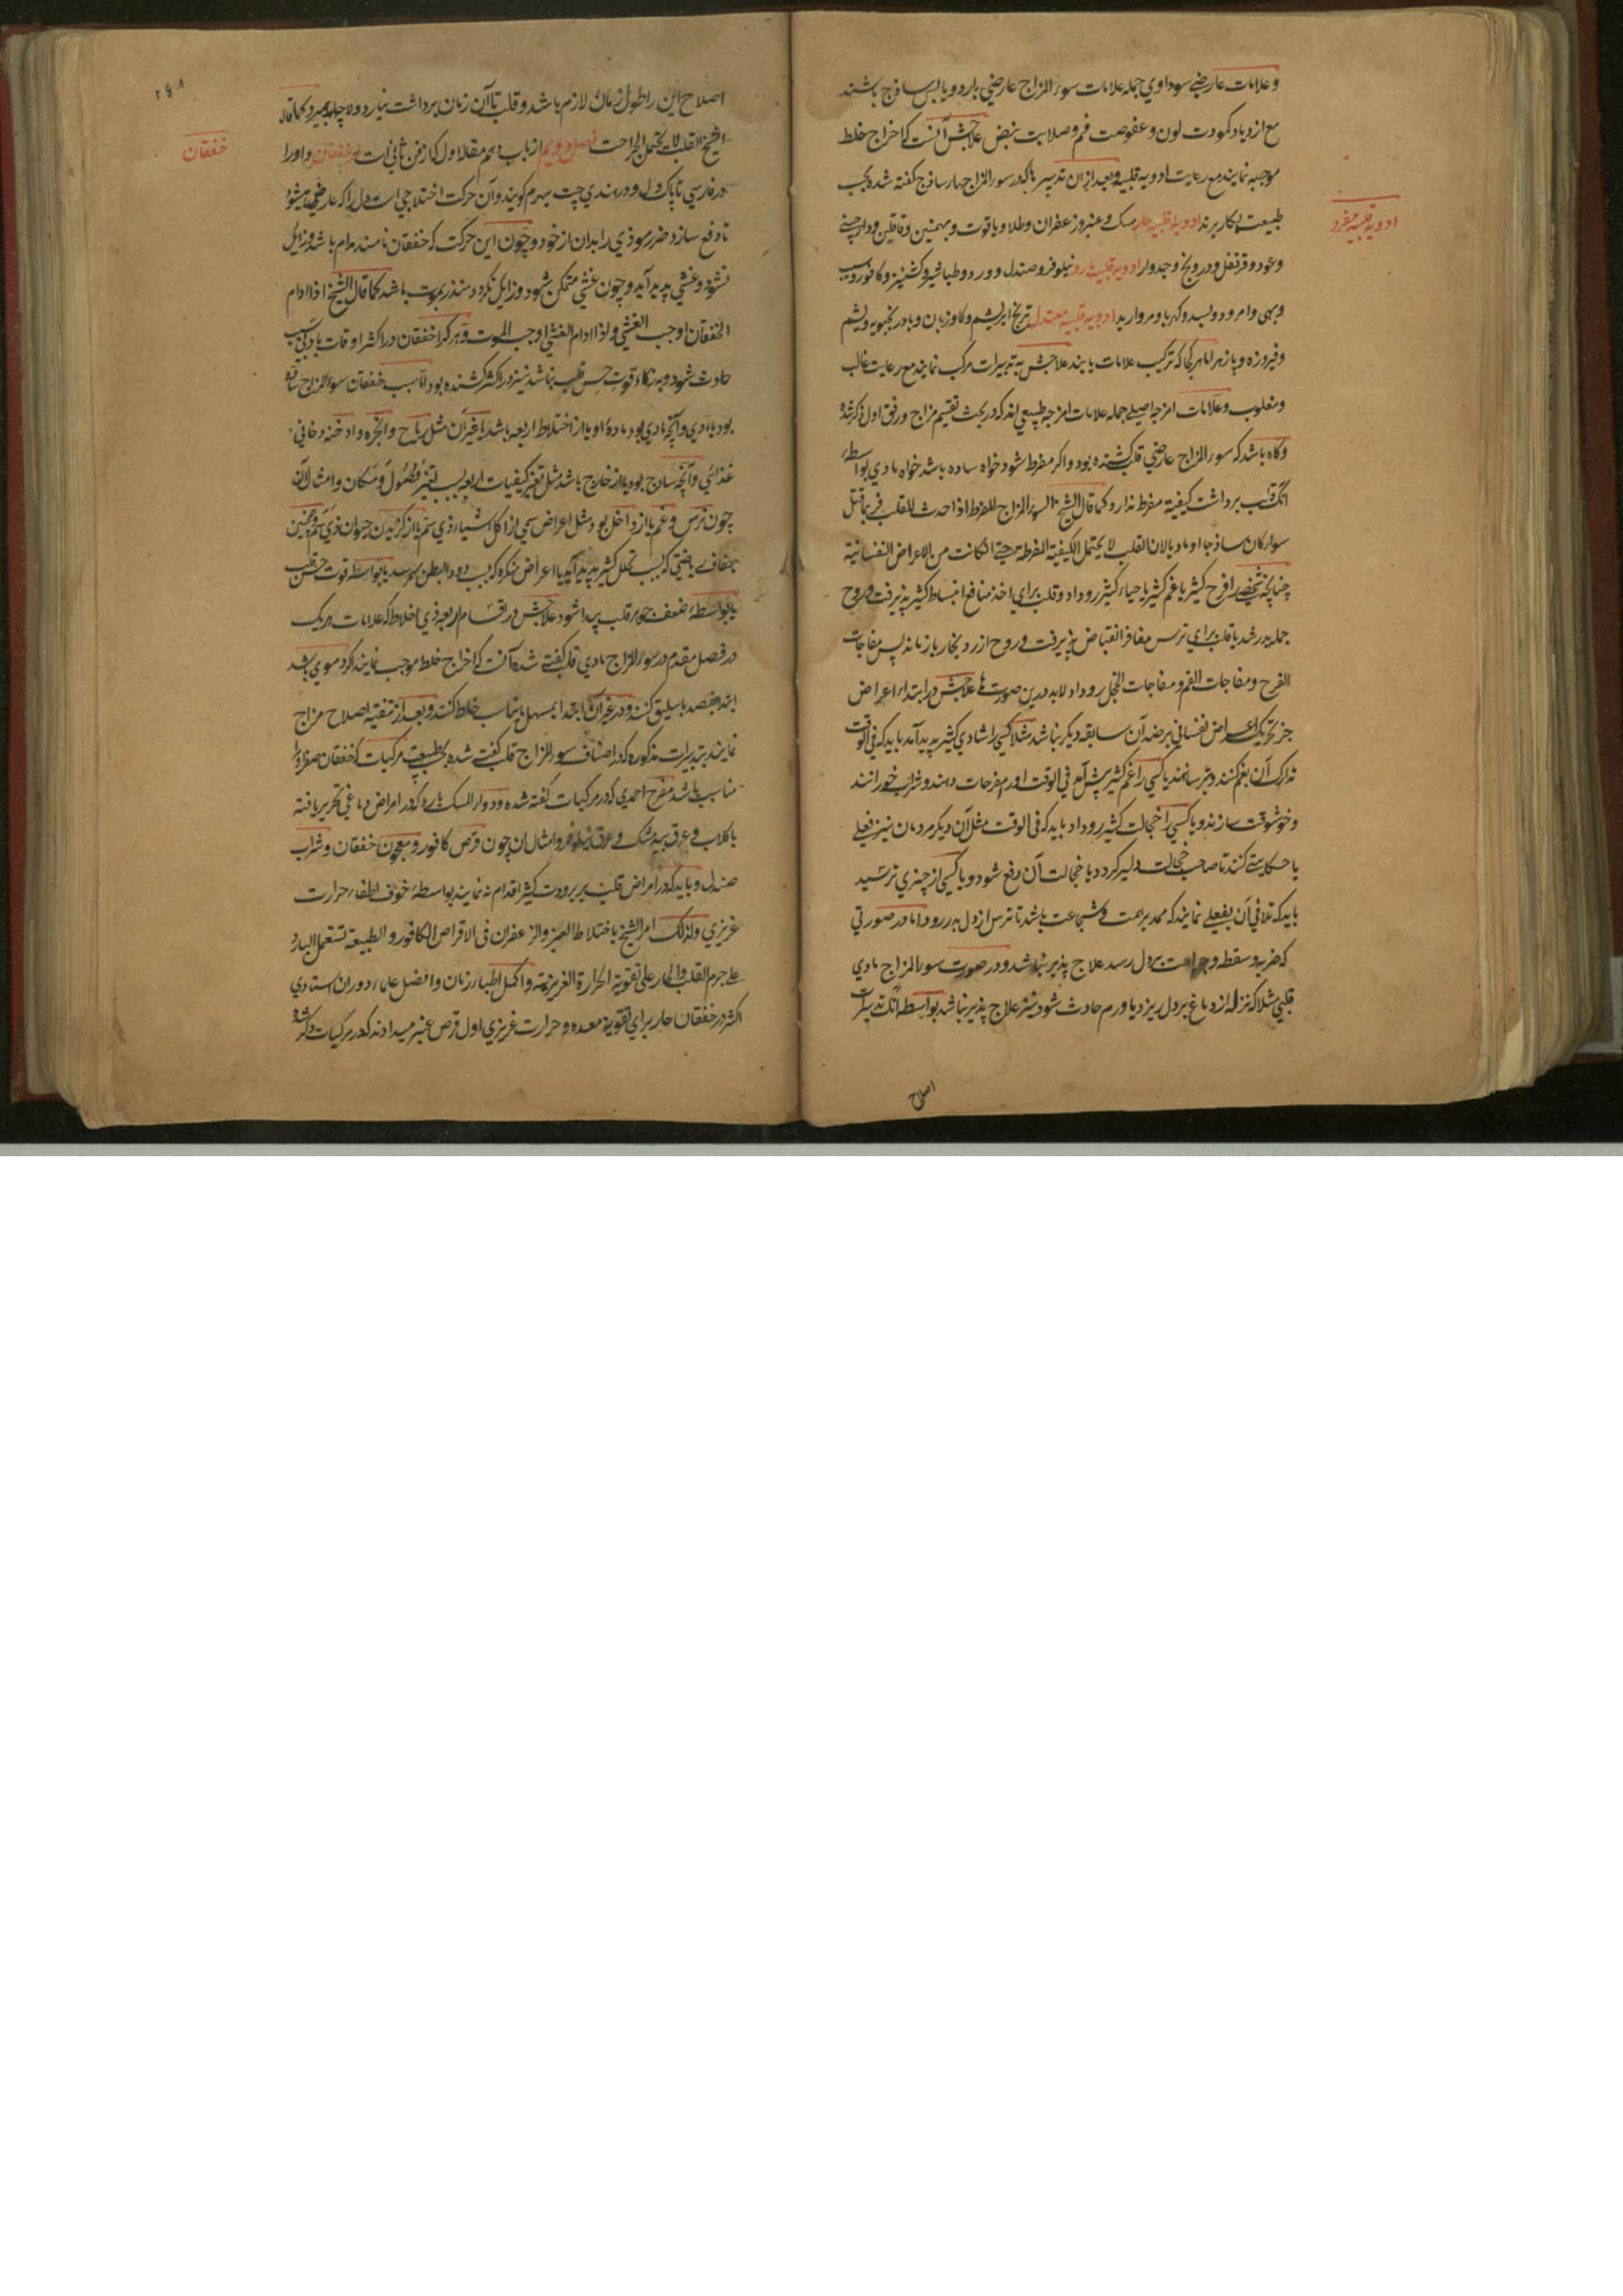 و علامات عارضی سوداوی جمله علامات سوء المزاج عارضی بارد و یابس ساذج باشند
مع ازدیاد کمودت لون و عفوصت فم و صلابت نبض علاجش آنست که اخراج خلط
موجبه نمایند مع رعایت ادویه قلبیه و بعد ازان تدبیر که در سوء المزاج چهار ساذج گفته شده بحسب
طبیعت بکار برند ادویهٔ قلبیه حار مسک و عنبر و زعفران و طلا و یاقوت و بهمنین و قاقلین و دارچینی
ادویه قلبیه مفرد
و عود و قرنفل و درونج و جدوار ادویه قلبیه بارد نیلوفر و صندل و ورد و طباشیر و کشنیز و کافور و سیب
و بهی و امرود و بسد و کهربا و مروارید ادویه قلبیه معتدل ابریشم و کاوزبان و بادرنجبویه و یشم
و فیروزه و پازهر اما هر کجا که ترکیب علامات یابند علاجش به تدبیرات مرکب نمایند مع رعایت غالب
و مغلوب و علامات امزجه اصلی جمله علامات امزجه طبیعی اند که در بحث تقسیم مزاج ورق اول ذکر شد
و کاه باشد که سوء المزاج عارضی قلب کشنده بود و اکر مفرط شود خواه ساده باشد خواه مادی بواسطهٔ
آنکه قلب برداشت کیفیة مفرط ندارد کما قال الشیخ السوء المزاج المفرط اذا حدث للقلب فربما قتل
سواء کان ساذجا او مادیا لان القلب لا یحتمل الکیفیة المفرطة حتی انکانت من الاعراض النفسانیة
چنانچه شخصی را فرح کثیر یا غم کثیر یا حیاء کثیر رو داد و قلب برای اخذ منافع انبساط کثیر پذیرفت و روح
جمله بدر شد یا قلب برای ترس مضار انقباض پذیرفت و روح از رد بخار باز ماند پس مفاجات
الفرح و مفاجات الغم و مفاجات الخجل رو داد لابد درین صورت ها علاجش در ابتداء اعراض
جز تحریک اعراض نفسانی بر ضد آن سابقه دیکر نباشد مثلا کسی را شادی کثیر پدید آمد باید که فی الوقت
تدارک آن بغم کنند و بترسانند یا کسی را غم کثیر پیش آمد فی الوقت اورا مفرحات دهند و شراب خورانند
و خوشوقت سازند و یا کسی را خجالت کثیر رو داد باید که فی الوقت مثل آن دیکر مردمان نیز فعلی
یا حکایتی کنند تا صاحب خجالت دلیر کردد یا خجالت آن دفع شود و یا کسی از چیزی ترسید
باید که تلافی آن بفعلی نمایند که ممد بر همت و شجاعت باشد تا ترس از دل بدر رود اما در صورتی
که ضربه و سقطه و جراحت بر دل رسد علاج پذیر نباشد و در صورت سوء المزاج مادی
قلبی مثلا که نزله از دماغ بر دل ریزد یا ورم حادث شود نیز علاج پذیر نباشد بواسطه آنکه تدبیرات
اصلاح
۲۶۸
اصلاح این را طول زمان لازم باشد و قلب تا آن زمان برداشت نیارد و لاچار بمیرد کما قال
الشیخ القلب لا یحتمل الجراحت فصل دویم از باب دهم مقالا اول که از فن ثانی است در خفقان و اورا
خفقان
در فارسی تپاک دل و در هندی چت بهرم کویند و آن حرکت اختلاجی است دل را که عارض میشود
تا دفع سازد ضرر موذی را بدان از خود و چون این حرکت که خفقان نامند مدام باشد و زایل
نشود و غشی پدید آید و چون غشی متمکن شود و زایل نکردد منذر بموت باشد کما قال الشیخ اذا ادام
الخفقان اوجب الغشی و اذا ادام الغشی اوجب الموت و هر کرا خفقان در اکثر اوقات بادنی سبب
حادث شود و به زکاء قوت حس قلب نباشد نیز در اکثر کشنده بود اما سبب خفقان سوء المزاج ساذج
بود یا مادی و آنچه مادی بود مادهٔ او یا از اختلاط اربعه باشد یا غیر آن مثل ریاح و ابخره و ادخنه دخانی
غذائی و آنچه ساذج بود یا از خارج باشد مثل تغیر کیفیات اربعه بسبب تغیر فصول و مکان و امثال آن
چون ترس و غم یا از داخل بود مثل اعراض سمی از اکل اشیاء ذی سم یا از کزیدن حیوان ذی سم و همچنین
کثیر پدید آید یا اعراض منکره که بسبب دود البطن بهم رسد یا بواسطه قوت حس قلب
یا بواسطهٔ ضعف جوهر قلب پیدا شود علاجش در اقسام اربعه ذی اخلاط که علامات هر یک
در فصل مقدم در سوء المزاج مادی قلب کفته شد آنست که اخراج خلط موجب نمایند اکر دموی باشد
ابتدا بفصد باسلیق کنند و در غیر آن ابتدا بمسهل مناسب خلط کنند و بعد از تنقیه اصلاح مزاج
نمایند بتدبیرات مذکوره که در اصناف سوء المزاج قلب کفته شده مرکبات که خفقان صفراوی را
مناسب باشد مفرح احمدی که در مرکبات کفته شده و دواء المسک بارد که در امراض دماغی تحریر یافته
با کلاب و عرق بید مشک و عرق نیلوفر و امثال آن چون قرص کافور و معجون خفقان و شراب
صندل و باید که در امراض قلب بر برودت کثیر اقدام نه نمایند بواسطهٔ خوف اطفاء حرارت
غریزی و لذلک امر الشیخ باختلاط العنبر و الزعفران فی الاقراص الکافور و الطبیعة تستعمل البارد
علی جرم القلب و الحار علی تقویة الحرارة الغریزیة و اکمل اطباء زمان و افضل علماء دوران استادی
اکثر در خفقان حار برای تقویة معده و حرارت غریزی اول قرص عنبر میدادند که در مرکبات ذکر شد